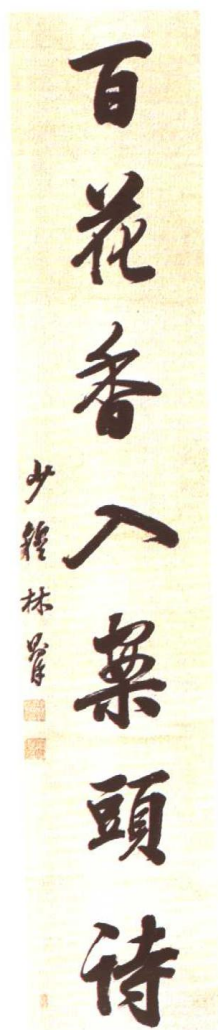 百花香入案頭詩
少穆林則徐